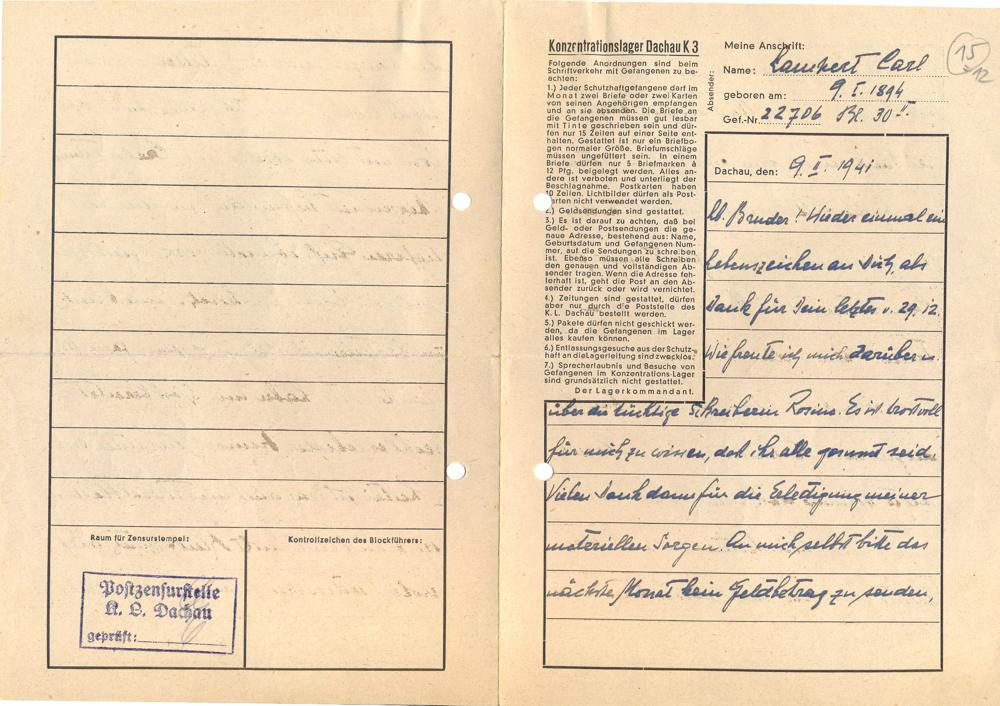 Raum für Zensurstempel:
Kontrollzeichen des Blockführers:
Postzensurstelle
K. L. Dachau
geprüft:
Konzentrationslager Dachau K 3
Folgende Anordnungen sind beim
Schriftverkehr mit Gefangenen zu be-
achten:
1.) Jeder Schutzhaftgefangene darf im
Monat zwei Briefe oder zwei Karten
von seinen Angehörigen empfangen
und an sie absenden. Die Briefe an
die Gefangenen müssen gut lesbar
mit Tinte geschrieben sein und dür-
fen nur 15 Zeilen auf einer Seite ent-
halten. Gestattet ist nur ein Briefbo-
gen normaler Größe. Briefumschläge
müssen ungefüttert sein. In einem
Briefe dürfen nur 5 Briefmarken à
12 Pfg. beigelegt werden. Alles an-
dere ist verboten und unterliegt der
Beschlagnahme. Postkarten haben
10 Zeilen. Lichtbilder dürfen als Post-
karten nicht verwendet werden.
2.) Geldsendungen sind gestattet.
3.) Es ist darauf zu achten, daß bei
Geld- oder Postsendungen die ge-
naue Adresse, bestehend aus: Name,
Geburtsdatum und Gefangenen Num-
mer, auf die Sendungen zu schreiben
ist. Ebenso müssen alle Schreiben
den genauen und vollständigen Ab-
sender tragen. Wenn die Adresse feh-
lerhaft ist, geht die Post an den Ab-
sender zurück oder wird vernichtet.
4.) Zeitungen sind gestattet, dürfen
aber nur durch die Poststelle des
K. L. Dachau bestellt werden.
5.) Pakete dürfen nicht geschickt wer-
den, da die Gefangenen im Lager
alles kaufen können.
6.) Entlassungsgesuche aus der Schutz-
haft an die Lagerleitung sind zwecklos.
7.) Sprecherlaubnis und Besuche von
Gefangenen im Konzentrations-Lager
sind grundsätzlich nicht gestattet.
Der Lagerkommandant.
Absender:
Meine Anschrift:
Name: Lampert Carl
geboren am: 9. I. 1894
Gef.-Nr. 22706 Bl. 30
15
12
Dachau, den: 9. II. 1941
lb. Bruder! Wieder einmal ein
Lebenszeichen an Dich, als
Dank für Dein letztes v. 29. 12.
Wie freute ich mich darüber u.
über die tüchtige Schreiberin Rosina. Es ist trostvoll
für mich zu wissen, daß ihr alle gesund seid.
Vielen Dank dann für die Erledigung meiner
materiellen Sorgen. An mich selbst bitte das
nächste Monat kein Geldbetrag zu senden,